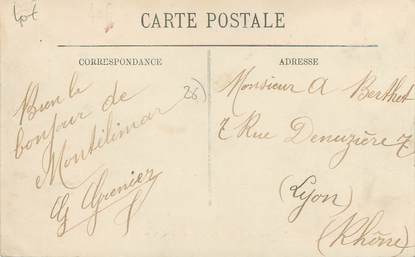 Lot
CARTE POSTALE
CORRESPONDANCE
ADRESSE
Bien le
bonjour de
Montélimar
G Grenier
26)
Monsieur A Berthet
7 Rue Denuzière 7
(Lyon)
(Rhône)